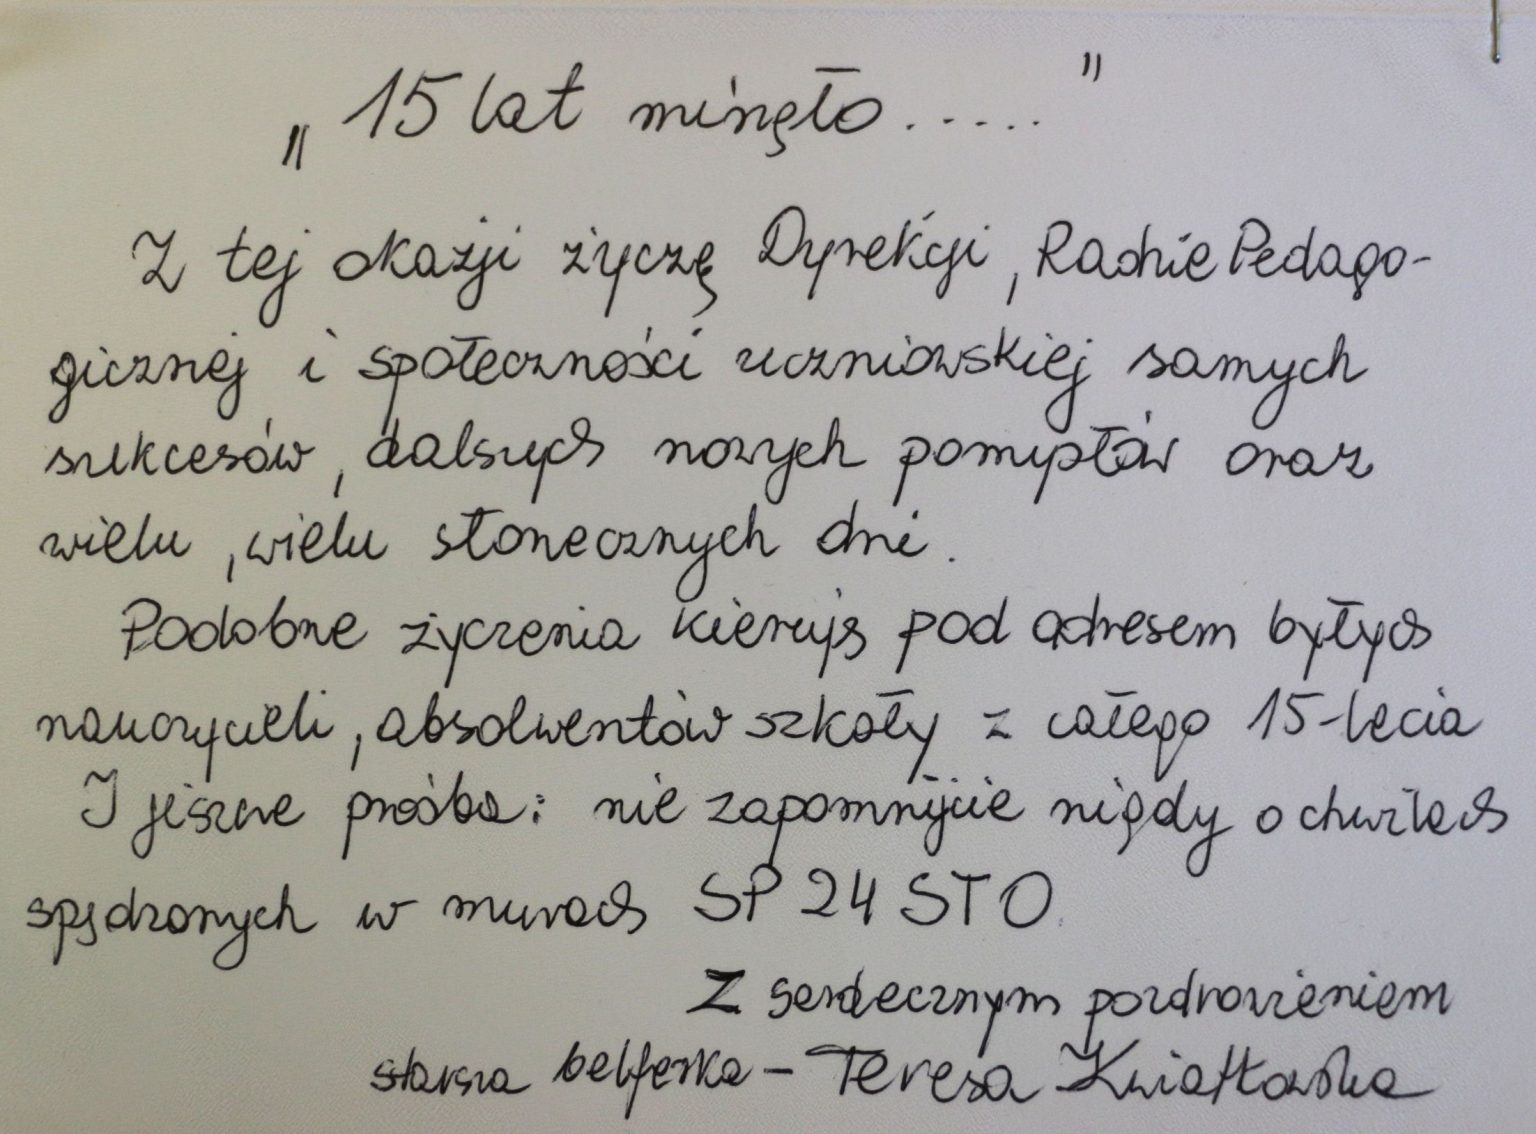 „15 lat minęło....."
Z tej okazji życzę Dyrekcji, Radzie Pedago-
gicznej i społeczności uczniowskiej samych
sukcesów, dalszych nowych pomysłów oraz
wielu, wielu słonecznych dni.
Podobne życzenia kieruję pod adresem byłych
nauczycieli, absolwentów szkoły z całego 15-lecia
I jeszcze prośba: nie zapomnijcie nigdy o chwilach
spędzonych w murach SP 24 STO.
Z serdecznym pozdrowieniem
starsza belferka - Teresa Kwiatkowska